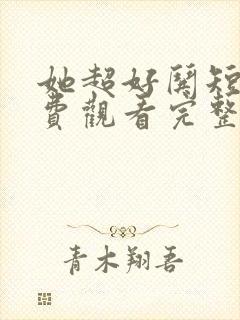 她超好鬨短
費觀看完整
青木翔吾